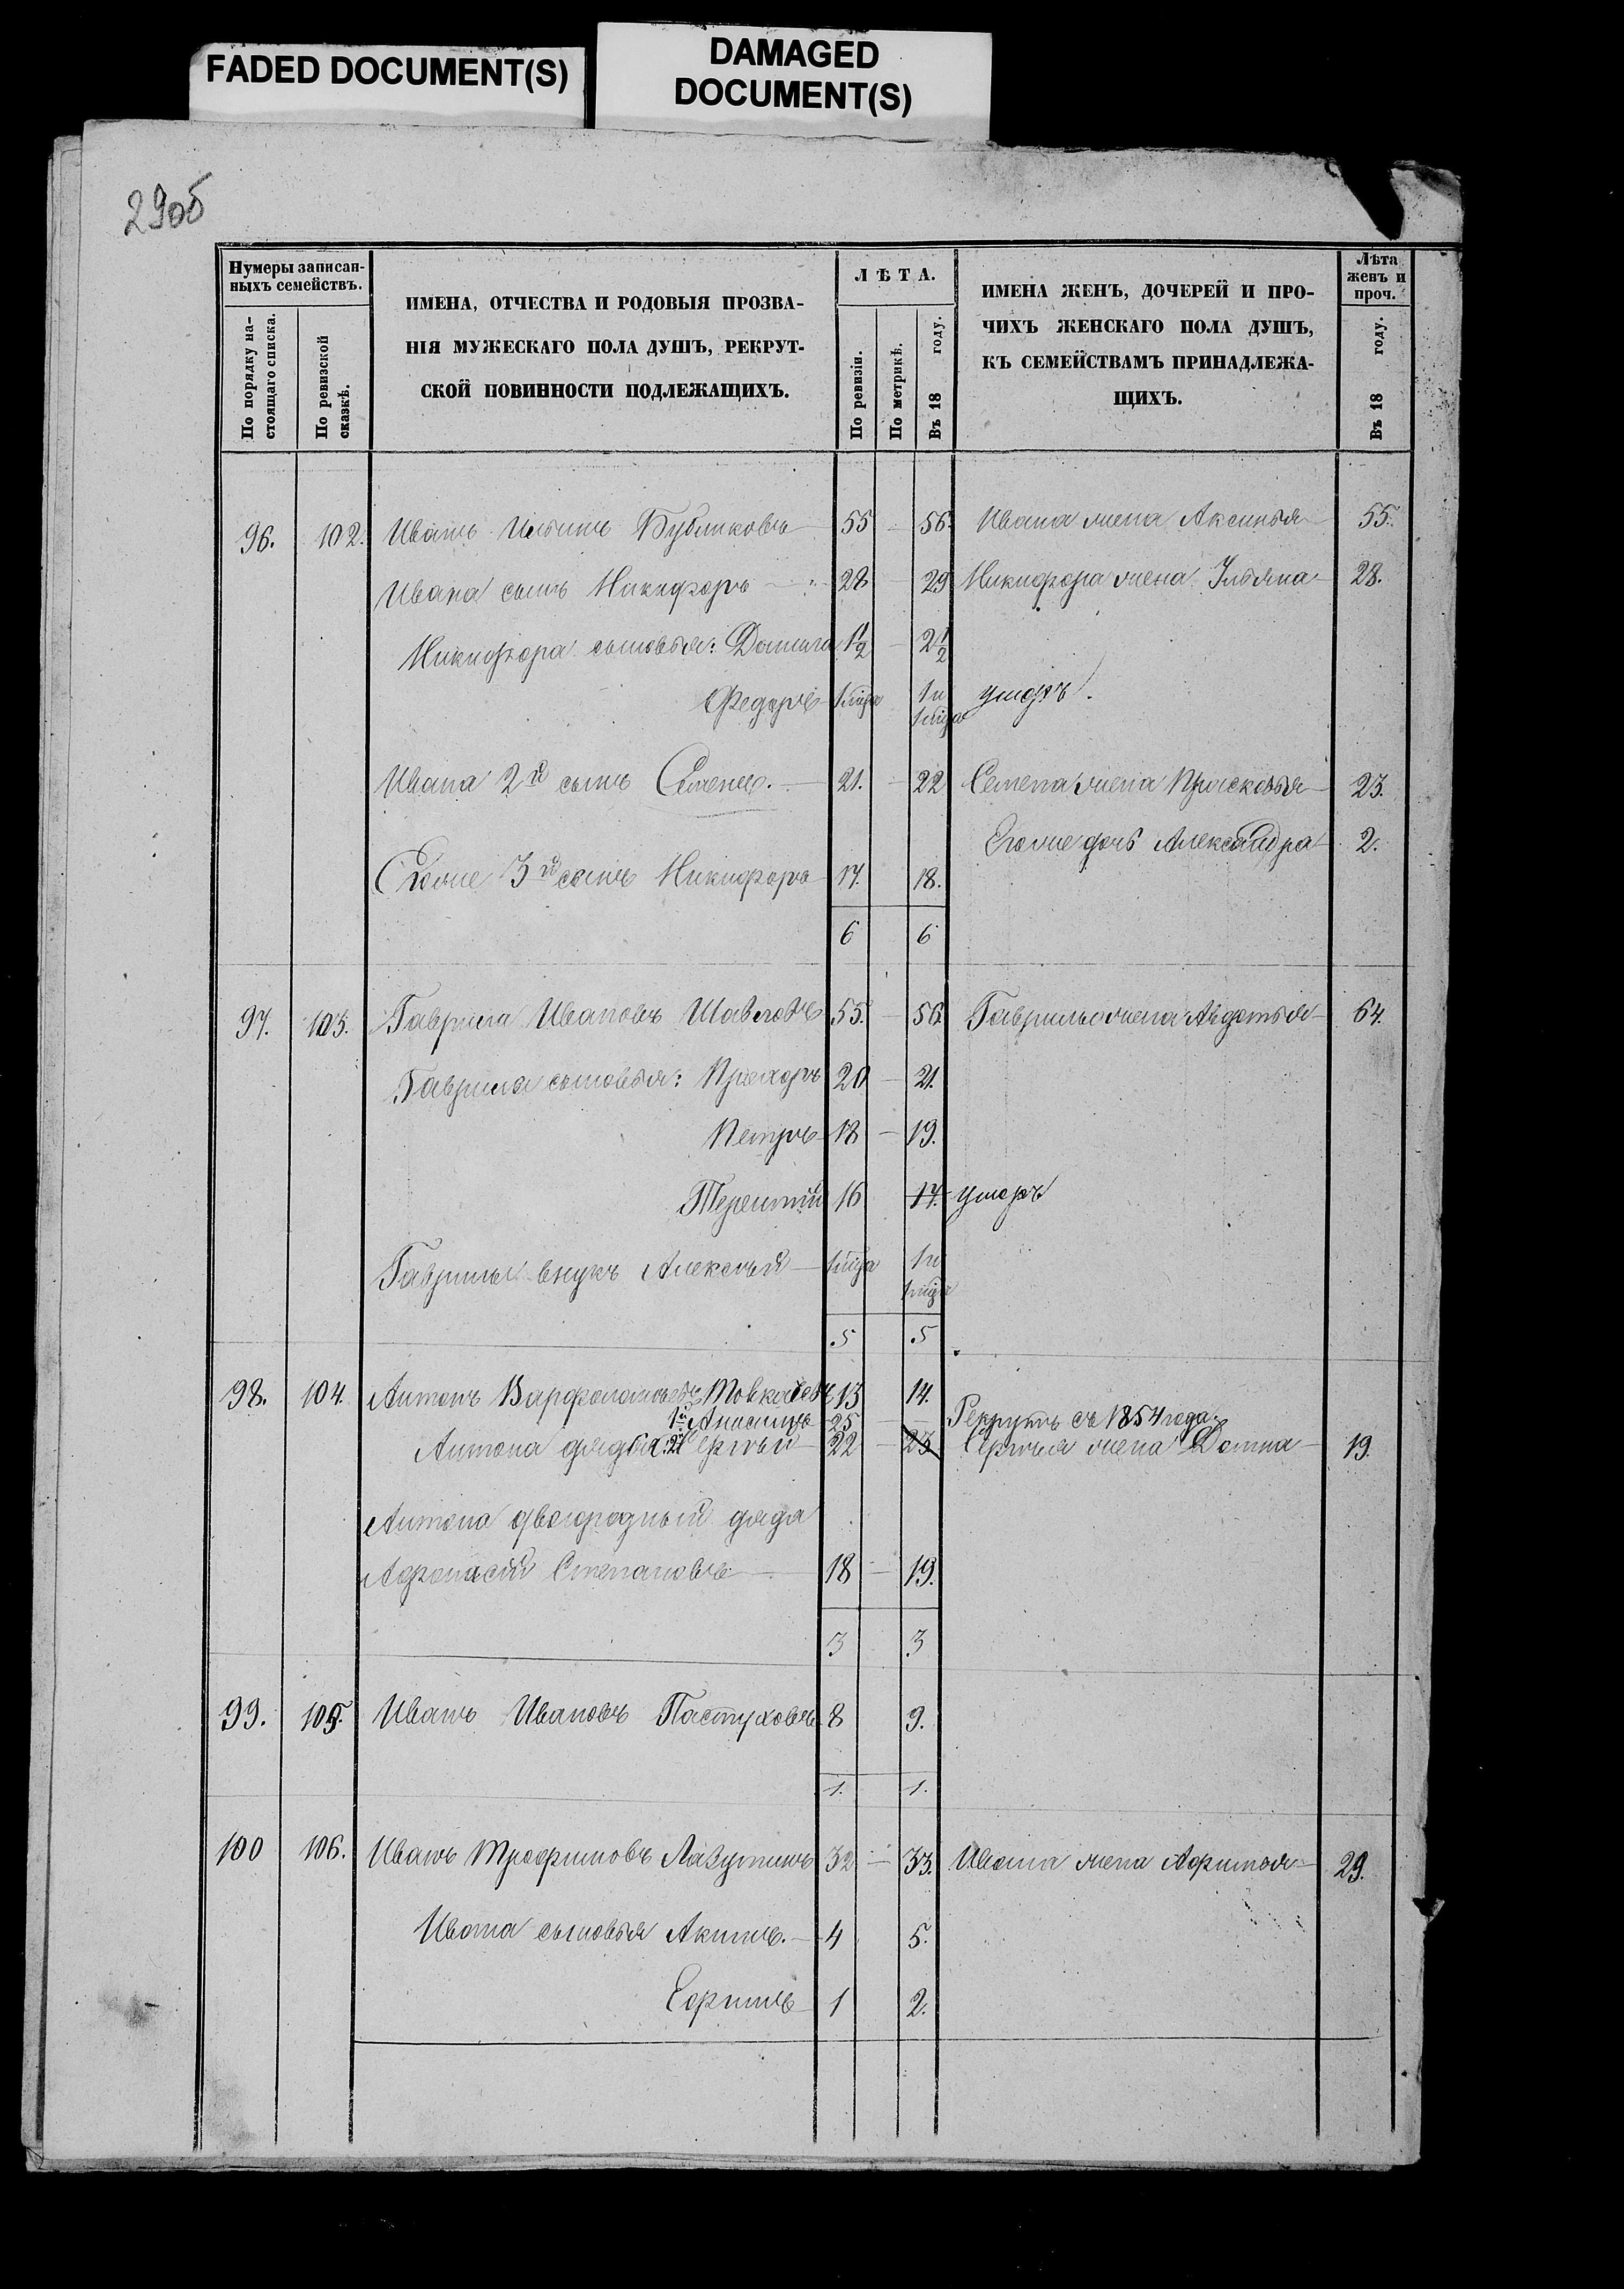 FADED DOCUMENT(S)
DAMAGED
DOCUMENT(S)
29об
Нумеры записан-
ныхъ семействъ.
По порядку на-
стоящаго списка.
По ревизской
сказкѣ.
ИМЕНА, ОТЧЕСТВА И РОДОВЫЯ ПРОЗВА-
НІЯ МУЖЕСКАГО ПОЛА ДУШЪ, РЕКРУТ-
СКОЙ ПОВИННОСТИ ПОДЛЕЖАЩИХЪ.
ЛѢТА.
По ревизіи.
По метрикѣ.
Въ 18 году.
ИМЕНА ЖЕНЪ, ДОЧЕРЕЙ И ПРО-
ЧИХЪ ЖЕНСКАГО ПОЛА ДУШЪ,
КЪ СЕМЕЙСТВАМЪ ПРИНАДЛЕЖА-
ЩИХЪ.
Лѣта
женъ и
проч.
Въ 18 году.
96. 102. Иванъ Ильинъ Бубликовъ 55 – 56. Ивана жена Аксинья 55.
Ивана сынъ Никифоръ 28 – 29 Никифора жена Ульяна 28.
Никифора сыновья: Данила 1½ – 2½
Федоръ 1 мѣца 1 и умеръ.
1 мѣца
Ивана 2й сынъ Семенъ. 21. – 22 Семена жена Прасковья 23.
Егоже дочь Александра 2.
Егоже 3й сынъ Никифоръ 17. 18.
6 6
97. 103. Гаврила Ивановъ Шавловъ 55. – 56. Гаврилы жена Авдотья 64.
Гаврила сыновья: Прохоръ 20 – 21.
Петръ 18 – 19.
Терентій 16 17. умеръ
Гаврилы внукъ Алексѣй 1 мѣца 1 и
1 мѣца
5 5
98. 104. Антонъ Варфоломѣевъ 13 14.
1й 25 – Рекрутъ съ 1854 года.
Антона дядья: 2й Сергѣй 22 – 23 Сергѣя жена Домна 19.
Антона двоюродный дядя
Афонасій Степановъ 18 – 19.
3 3
99. 105. Иванъ Ивановъ Пастуховъ 8 9.
1. 1.
100 106. Иванъ Трофимовъ Лазутинъ 32 – 33. Ивана жена Афимья 29.
Ивана сыновья Акимъ. 4 5.
Ефимъ 1 2.